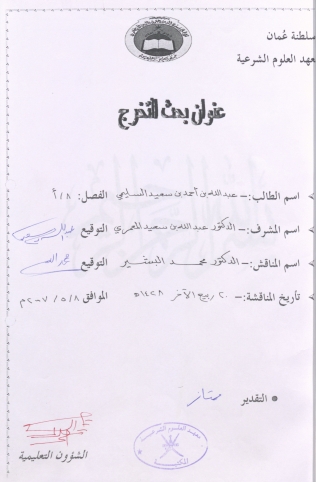 سلطنة عُمان
معهد العلوم الشرعية
عنوان بحث التخرج
اسم الطالب:- عبدالله بن أحمد بن سعيد السليمي الفصل: ٨/أ
اسم المشرف:- الدكتور عبدالله بن سعيد المعمري التوقيع
اسم المناقش:- الدكتور محمد البشير التوقيع
تأريخ المناقشة:- ٢٠ ربيع الآخر ١٤٢٨ه الموافق ٢٠٠٧/٥/٨م
التقدير ممتاز
الشؤون التعليمية
معهد العلوم الشرعية
المكتبة